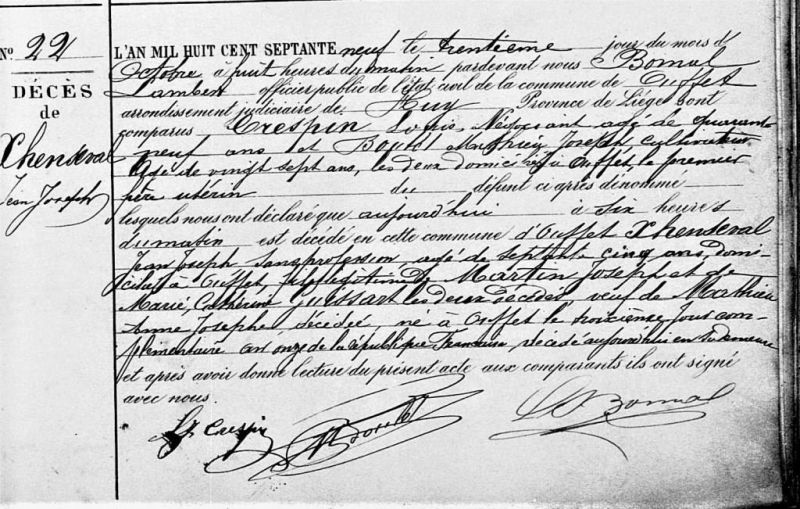 N° 22
DÉCÈS
de
Xhenseval
Jean Joseph
L'AN MIL HUIT CENT SEPTANTE neuf le trentième jour du mois d
Octobre à huit heures du matin pardevant nous Bomal
Lambert officier public de l'état civil de la commune de Ouffet
arrondissement judiciaire de Huy Province de Liége sont
comparus Crespin Louis, Négociant agé de quarante
neuf ans et Mathieu Joseph, cultivateur
agé de vingt sept ans, les deux domiciliés à Ouffet, le premier
frère utérin du défunt ci après dénommé
lesquels nous ont déclaré que aujourd'hui à six heures
du matin est décédé en cette commune d'Ouffet Xhenseval
Jean Joseph sans profession, agé de septante cinq ans, domi-
cilié à Ouffet, fils légitime de Martin Joseph et de
Marie, Catherine Guissart les deux décédés, veuf de Mathieu
Anne Josephe, décédée, né à Ouffet le troixième jour com-
plémentaire an onze de la république française, décédé aujourd'hui en sa demeure
et après avoir donné lecture du présent acte aux comparants ils ont signé
avec nous.
Crespin
Bomal